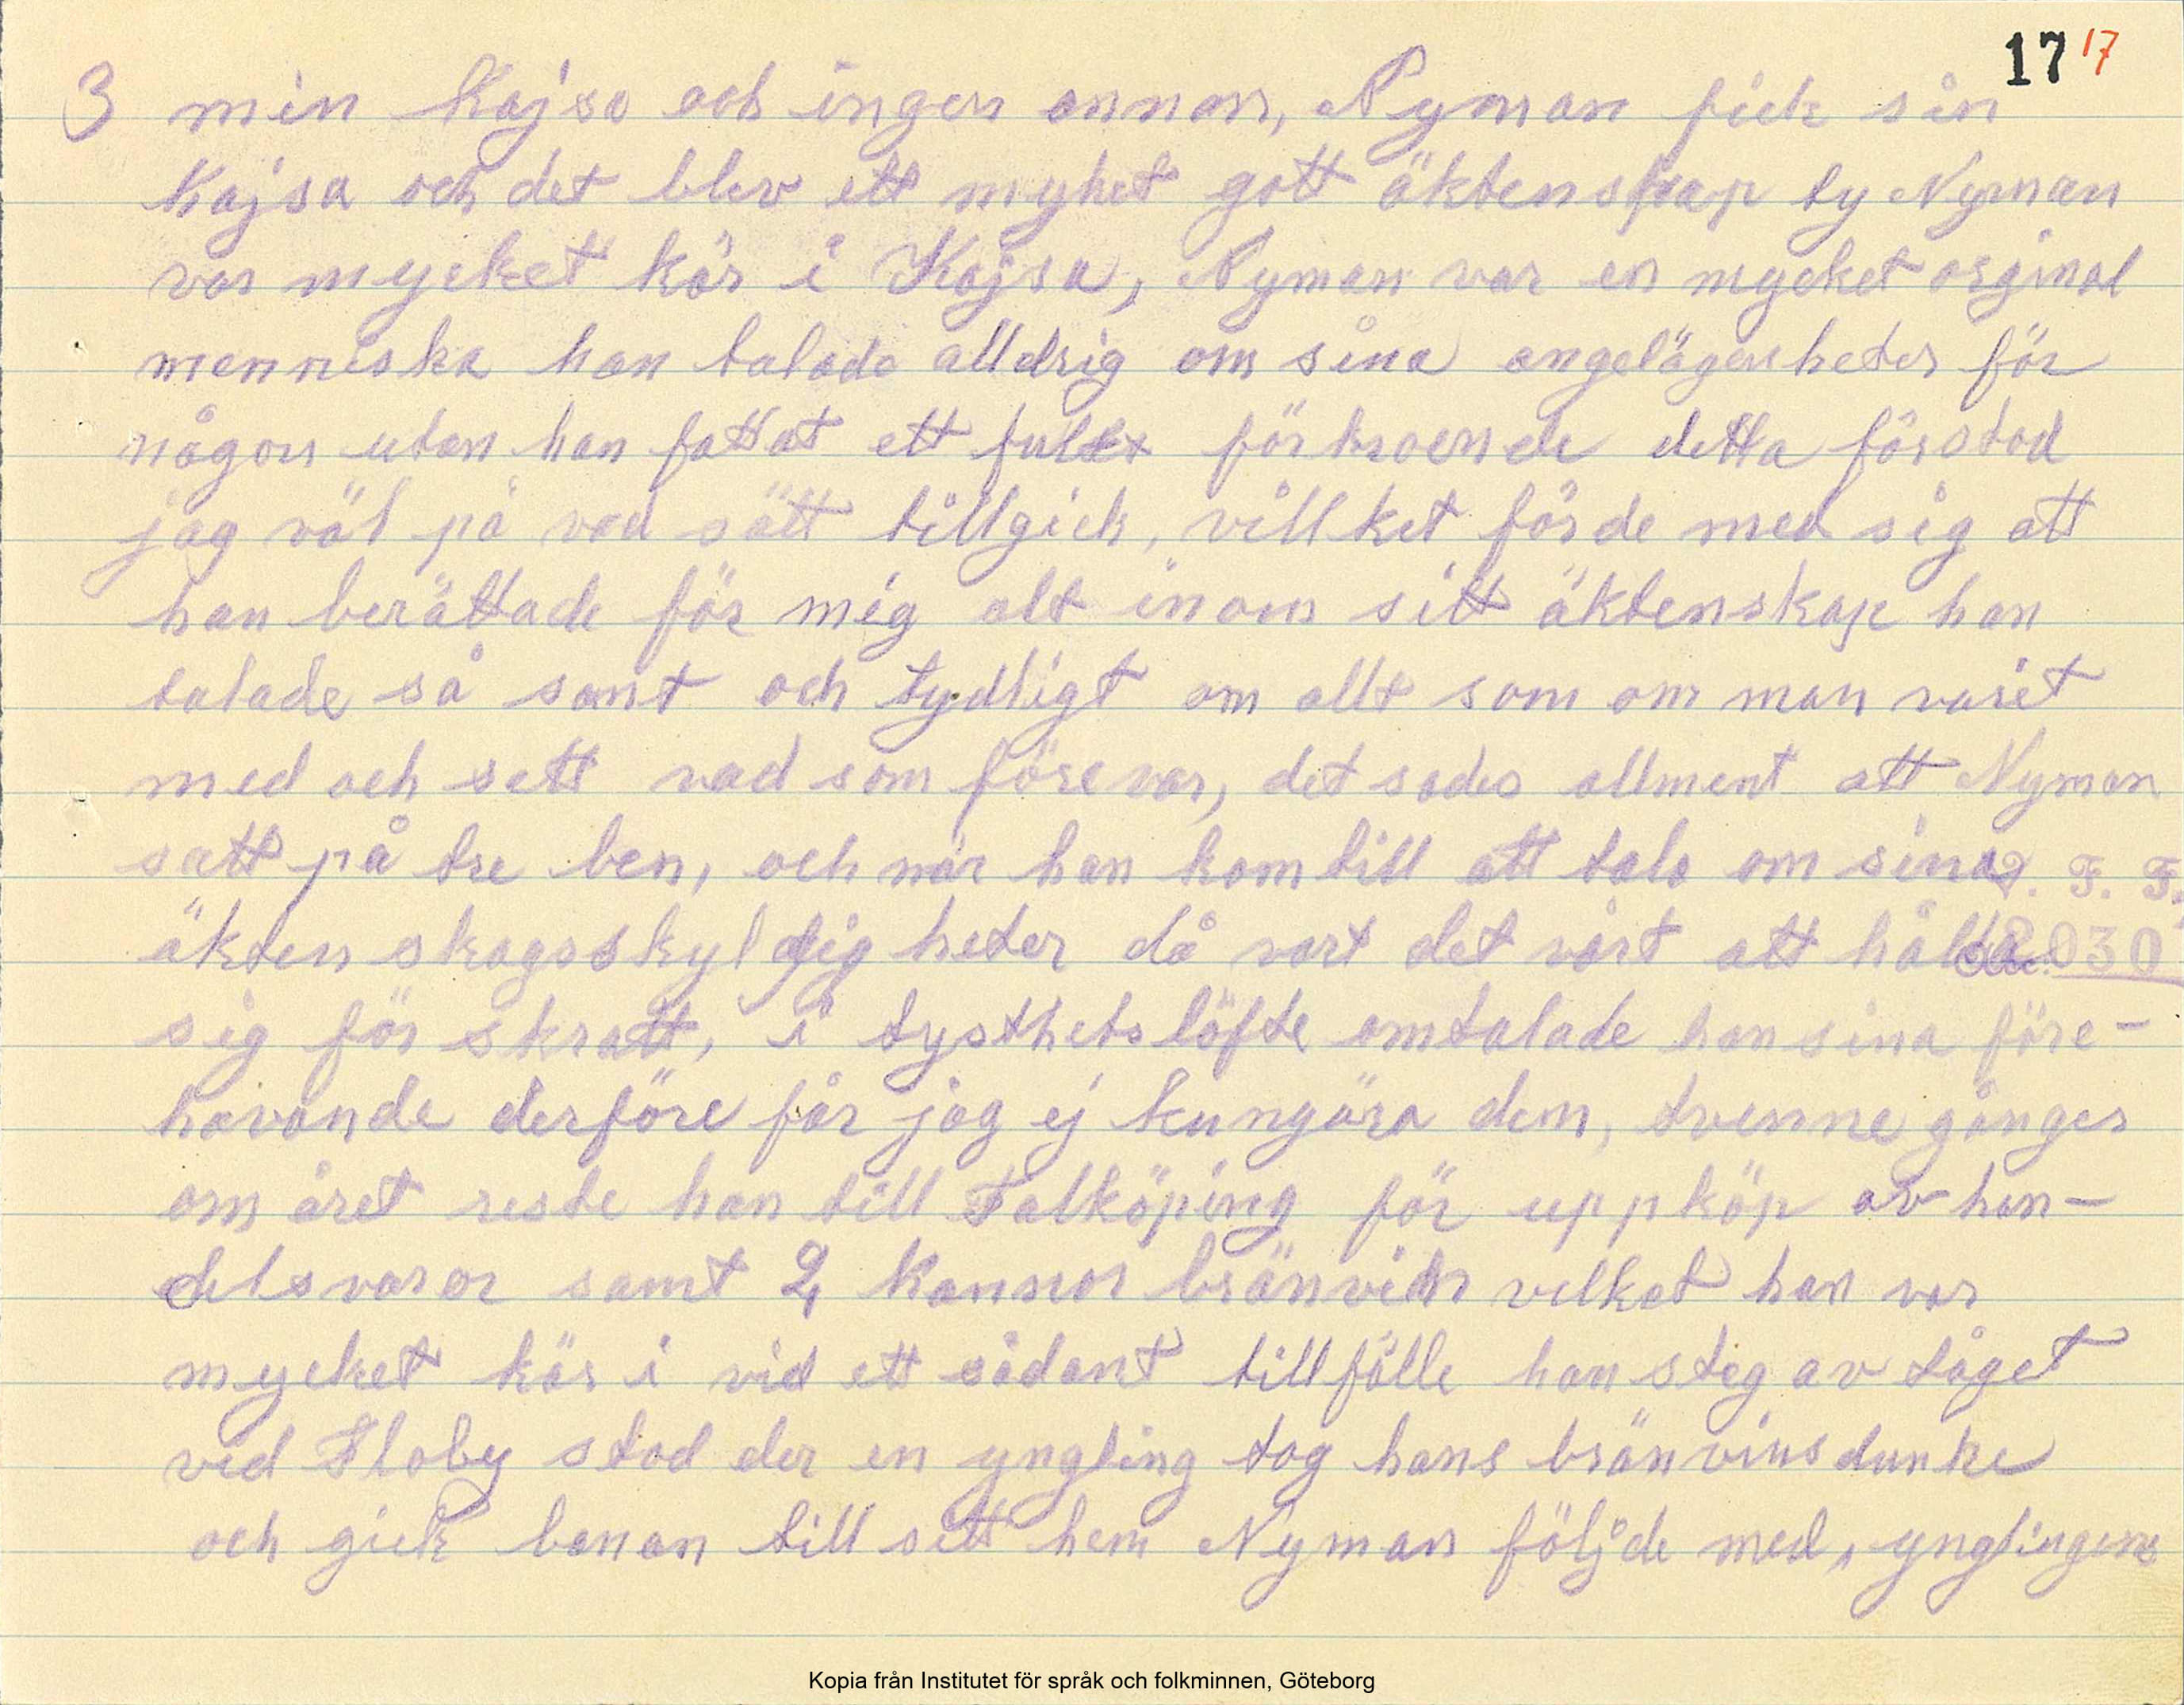 17 17
3 min Kajsa och ingen annan, Nyman fick sin
Kajsa och det blev ett myket gott äktenskap ty Nyman
var mycket kär i Kajsa, Nyman var en mycket orginal
menniska han talade alldrig om sina angelägenheter för
någon utan han fattat ett fullt förtroende detta förstod
jag väl på vad sätt tillgick, villket förde med sig att
han berättade för mig alt inom sitt äktenskap han
talade så sant och tydligt om allt som om man varit
med och sett vad som förevar, det sades allment att Nyman
satt på tre ben, och när han kom till att tala om sina
V. F. F.
äktenskapsskyldigheter då vart det vårt att hålla
2030
sig för skratt, i tysthetslöfte omtalade han sina före-
havande derföre får jag ej kungöra dem, tvenne gånger
om året reste han till Falköping för uppköp av han-
delsvaror samt 2 kannor bränvin vilket han var
mycket kär i vid ett sådant tillfälle han steg av tåget
vid Floby stod der en yngling tog hans bränvinsdunke
och gick banan till sitt hem Nyman följde med, ynglingens
Kopia från Institutet för språk och folkminnen, Göteborg